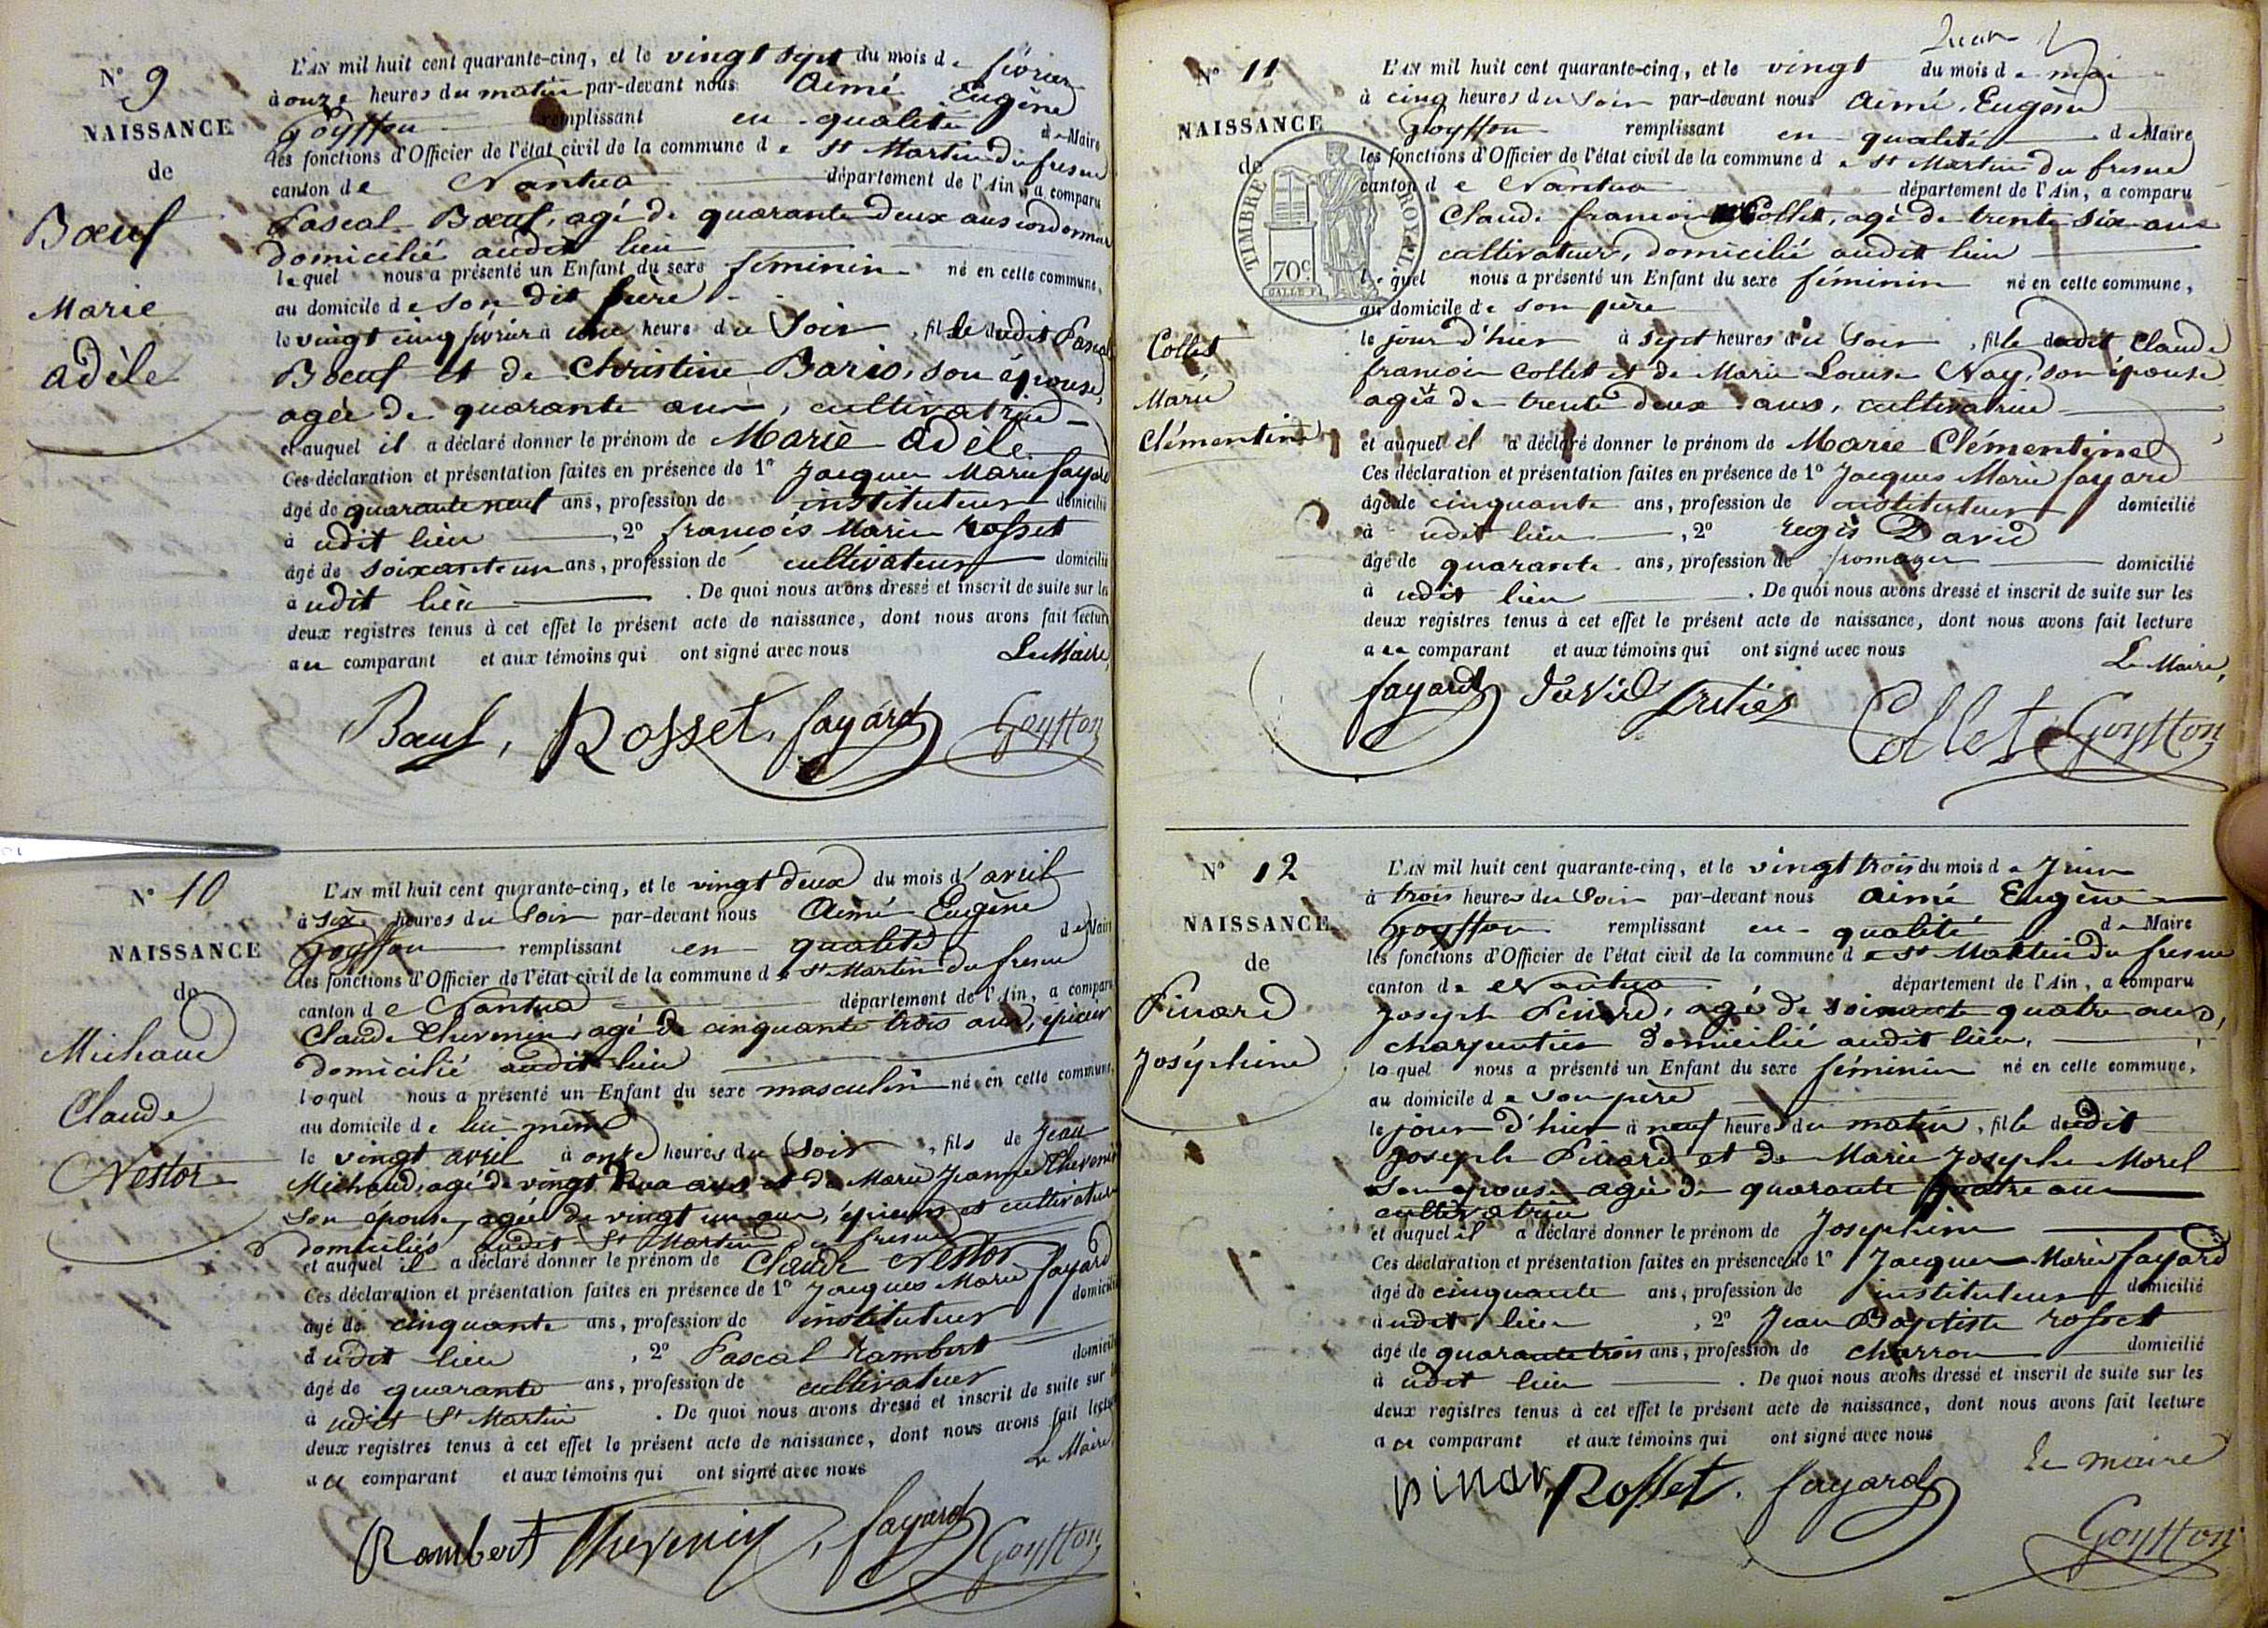 N° 9
NAISSANCE
de
Bœuf
Marie
adèle
L'AN mil huit cent quarante-cinq, et le vingt sept du mois de février
à onze heures du matin par-devant nous Aimé Eugène
Goyffon remplissant en qualité de Maire
les fonctions d'Officier de l'état civil de la commune de St Martin du fresne
canton de Nantua département de l'Ain, a comparu
Pascal Bœuf, agé de quarante deux ans cordonnier
domicilié audit lieu
lequel nous a présenté un Enfant du sexe féminin né en cette commune,
au domicile de son dit père
le vingt cinq février à une heure du Soir, fille dudit Pascal
Bœuf et de Christine Bario, son épouse,
agée de quarante ans, cultivatrice
et auquel il a déclaré donner le prénom de Marie adèle
Ces déclaration et présentation faites en présence de 1° Jacques Marie fayard
âgé de quarante neuf ans, profession de instituteur domicilié
à udit lieu, 2° françois Marie rosset
âgé de soixante un ans, profession de cultivateur domicilié
à udit lieu. De quoi nous avons dressé et inscrit de suite sur les
deux registres tenus à cet effet le présent acte de naissance, dont nous avons fait lecture
au comparant et aux témoins qui ont signé avec nous
Le Maire,
Bœuf, Rosset, fayard Goyffon
N° 10
NAISSANCE
de
Michaud
Claude
Nestor
L'AN mil huit cent quarante-cinq, et le vingt deux du mois d'avril
à six heures du Soir par-devant nous Aimé Eugène
Goyffon remplissant en qualité de Maire
les fonctions d'Officier de l'état civil de la commune de St Martin du fresne
canton de Nantua département de l'Ain, a comparu
Claude Thevenin, agé de cinquante trois ans, épicier
domicilié audit lieu
lequel nous a présenté un Enfant du sexe masculin né en cette commune,
au domicile de lui même
le vingt avril à onze heures du Soir, fils de Jean
Michaud, agé de vingt deux ans et de Marie Jeanne Thevenin
son épouse, agée de vingt un ans, épiciers et cultivateurs
domiciliés audit St Martin du fresne
et auquel il a déclaré donner le prénom de Claude Nestor
Ces déclaration et présentation faites en présence de 1° Jacques Marie fayard
âgé de cinquante ans, profession de instituteur domicilié
à udit lieu, 2° Pascal Rambert
âgé de quarante ans, profession de cultivateur domicilié
à udit St Martin. De quoi nous avons dressé et inscrit de suite sur les
deux registres tenus à cet effet le présent acte de naissance, dont nous avons fait lecture
au comparant et aux témoins qui ont signé avec nous
Le Maire,
Rambert Thevenin, fayard Goyffon
N° 11
NAISSANCE
de
TIMBRE ROYAL
70c
Collet
Marie
Clémentine
L'AN mil huit cent quarante-cinq, et le vingt du mois de mai
à cinq heures du Soir par-devant nous aimé Eugène
Goyffon remplissant en qualité de Maire
les fonctions d'Officier de l'état civil de la commune de St Martin du fresne
canton de Nantua département de l'Ain, a comparu
Claude francois Collet, agé de trente six ans
cultivateur, domicilié audit lieu
lequel nous a présenté un Enfant du sexe féminin né en cette commune,
au domicile de son père
le jour d'hier à sept heures du Soir, fille dudit Claude
francois Collet et de Marie Louise Nay, son épouse
agée de trente deux ans, cultivatrice
et auquel il a déclaré donner le prénom de Marie Clémentine
Ces déclaration et présentation faites en présence de 1° Jacques Marie fayard
âgé de cinquante ans, profession de instituteur domicilié
à udit lieu, 2° regis David
âgé de quarante ans, profession de fromager domicilié
à udit lieu. De quoi nous avons dressé et inscrit de suite sur les
deux registres tenus à cet effet le présent acte de naissance, dont nous avons fait lecture
au comparant et aux témoins qui ont signé avec nous
Le Maire,
fayard David Collet Goyffon
N° 12
NAISSANCE
de
Pinard
Joséphine
L'AN mil huit cent quarante-cinq, et le vingt trois du mois de Juin
à trois heures du Soir par-devant nous aimé Eugène
Goyffon remplissant en qualité de Maire
les fonctions d'Officier de l'état civil de la commune de St Martin du fresne
canton de Nantua département de l'Ain, a comparu
Joseph Pinard, agé de soixante quatre ans,
charpentier domicilié audit lieu,
lequel nous a présenté un Enfant du sexe féminin né en cette commune,
au domicile de son père
le jour d'hier à neuf heures du matin, fille dudit
Joseph Pinard et de Marie Josephe Morel
son épouse agée de quarante quatre ans
cultivatrice
et auquel il a déclaré donner le prénom de Josephine
Ces déclaration et présentation faites en présence de 1° Jacques Marie fayard
âgé de cinquante ans, profession de instituteur domicilié
à udit lieu, 2° Jean Baptiste rosset
âgé de quarante trois ans, profession de charron domicilié
à udit lieu. De quoi nous avons dressé et inscrit de suite sur les
deux registres tenus à cet effet le présent acte de naissance, dont nous avons fait lecture
au comparant et aux témoins qui ont signé avec nous
le maire
pinar Rosset. fayard
Goyffon